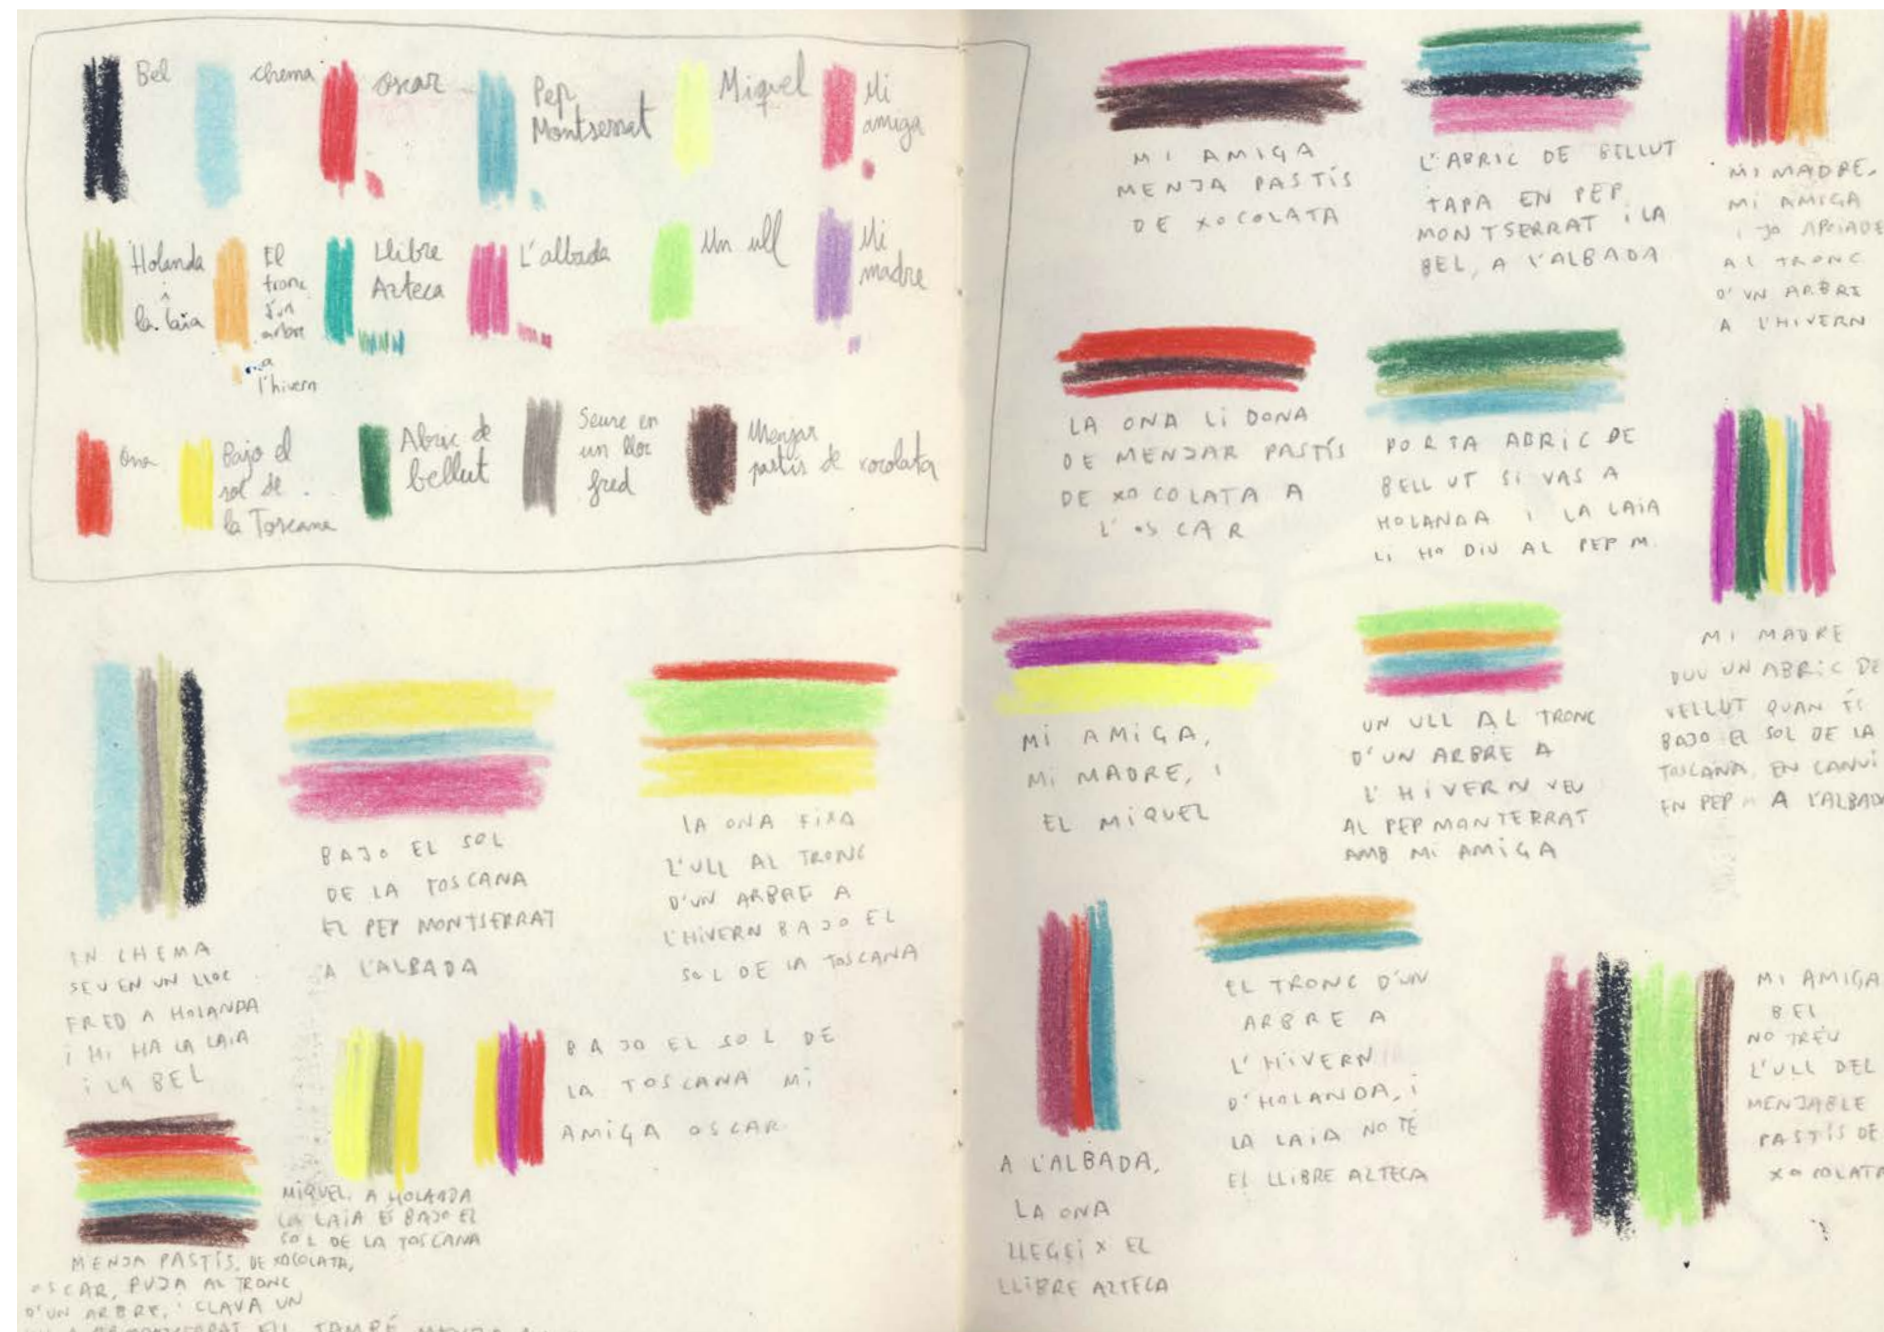 Bel
chema
Oscar
Pep
Montserrat
Miquel
Mi
amiga
Holanda
^
la laia
El
tronc
d'un
arbre
a
l'hivern
Llibre
Azteca
L'albada
Un ull
Mi
madre
Ona
Bajo el
sol de
la Toscana
Abric de
bellut
Seure en
un lloc
fred
Menjar
pastís de xocolata
EN CHEMA
SEU EN UN LLOC
FRED A HOLANDA
I HI HA LA LAIA
I LA BEL
BAJO EL SOL
DE LA TOSCANA
EL PEP MONTSERRAT
A L'ALBADA
LA ONA FIXA
L'ULL AL TRONC
D'UN ARBRE A
L'HIVERN BAJO EL
SOL DE LA TOSCANA
BAJO EL SOL DE
LA TOSCANA MI
AMIGA OSCAR
MIQUEL, A HOLANDA
LA LAIA ÉS BAJO EL
SOL DE LA TOSCANA
MENJA PASTÍS, DE XOCOLATA,
OSCAR, PUJA AL TRONC
D'UN ARBRE, I CLAVA UN
TAMPÉ
MI AMIGA
MENJA PASTÍS
DE XOCOLATA
L'ABRIC DE BELLUT
TAPA EN PEP
MONTSERRAT I LA
BEL, A L'ALBADA
MI MADRE,
MI AMIGA
I JO
AL TRONC
D'UN ARBRE
A L'HIVERN
LA ONA LI DONA
DE MENJAR PASTÍS
DE XOCOLATA A
L'OSCAR
PORTA ABRIC DE
BELLUT SI VAS A
HOLANDA I LA LAIA
LI HO DIU AL PEP M.
MI AMIGA,
MI MADRE, I
EL MIQUEL
UN ULL AL TRONC
D'UN ARBRE A
L'HIVERN VEU
AL PEP MONTERRAT
AMB MI AMIGA
MI MADRE
DUU UN ABRIC DE
VELLUT QUAN ÉS
BAJO EL SOL DE LA
TOSCANA, EN CANVI
EN PEP M A L'ALBADA
A L'ALBADA,
LA ONA
LLEGEIX EL
LLIBRE AZTECA
EL TRONC D'UN
ARBRE A
L'HIVERN
D'HOLANDA, I
LA LAIA NO TÉ
EL LLIBRE AZTECA
MI AMIGA
BEL
NO TREU
L'ULL DEL
MENJABLE
PASTÍS DE
XOCOLATA